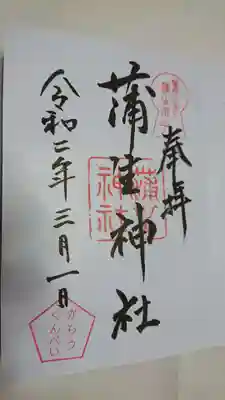 奉拝
蒲生神社
令和二年三月一日
がもう
くんぺい